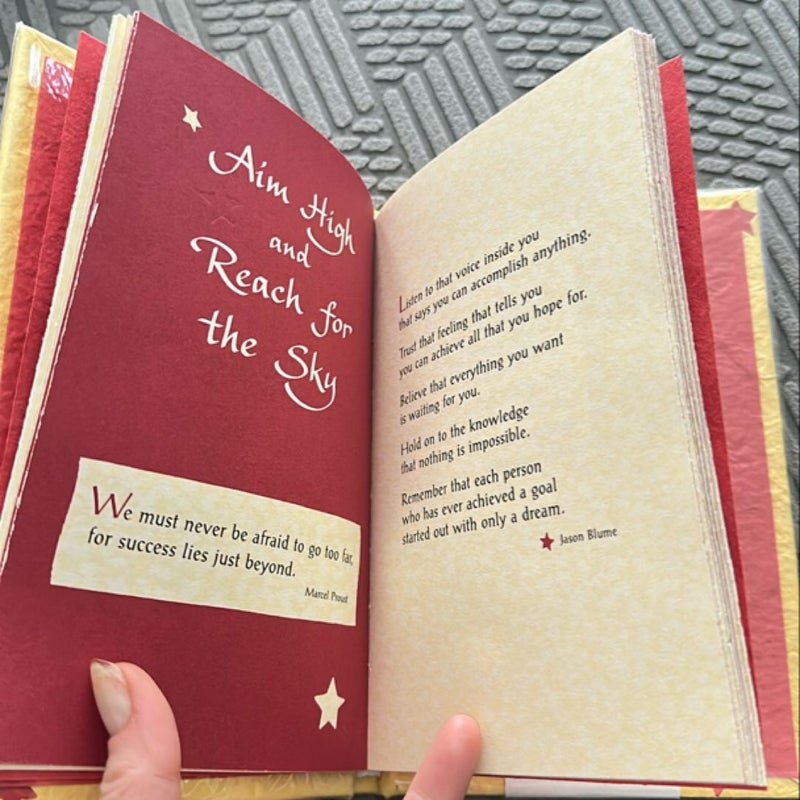 Aim High
and
Reach for
the Sky
We must never be afraid to go too far,
for success lies just beyond.
Marcel Proust
Listen to that voice inside you
that says you can accomplish anything.
Trust that feeling that tells you
you can achieve all that you hope for.
Believe that everything you want
is waiting for you.
Hold on to the knowledge
that nothing is impossible.
Remember that each person
who has ever achieved a goal
started out with only a dream.
Jason Blume